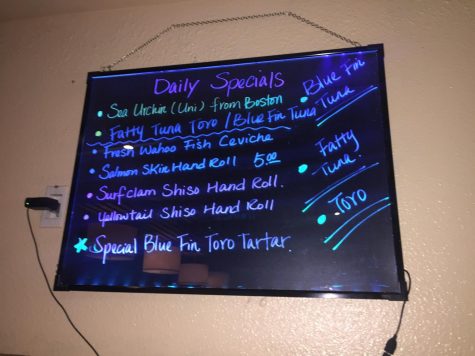 Daily Specials
• Sea Urchin (Uni) from Boston
• Fatty Tuna Toro / Blue Fin Tuna
• Fresh Wahoo Fish Ceviche
• Salmon Skin Hand Roll 5.00
• Surfclam Shiso Hand Roll.
• Yellowtail Shiso Hand Roll
★ Special Blue Fin Toro Tartar.
• Blue Fin
Tuna
• Fatty
Tuna.
• Toro